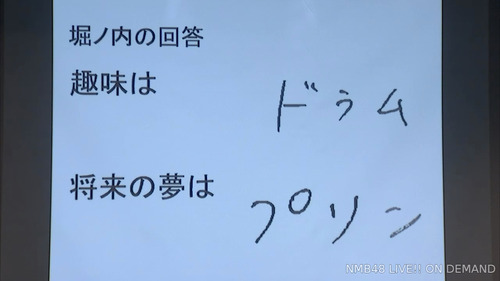 堀ノ内の回答
趣味は
ドラム
将来の夢は
プリン
NMB48 LIVE!! ON DEMAND